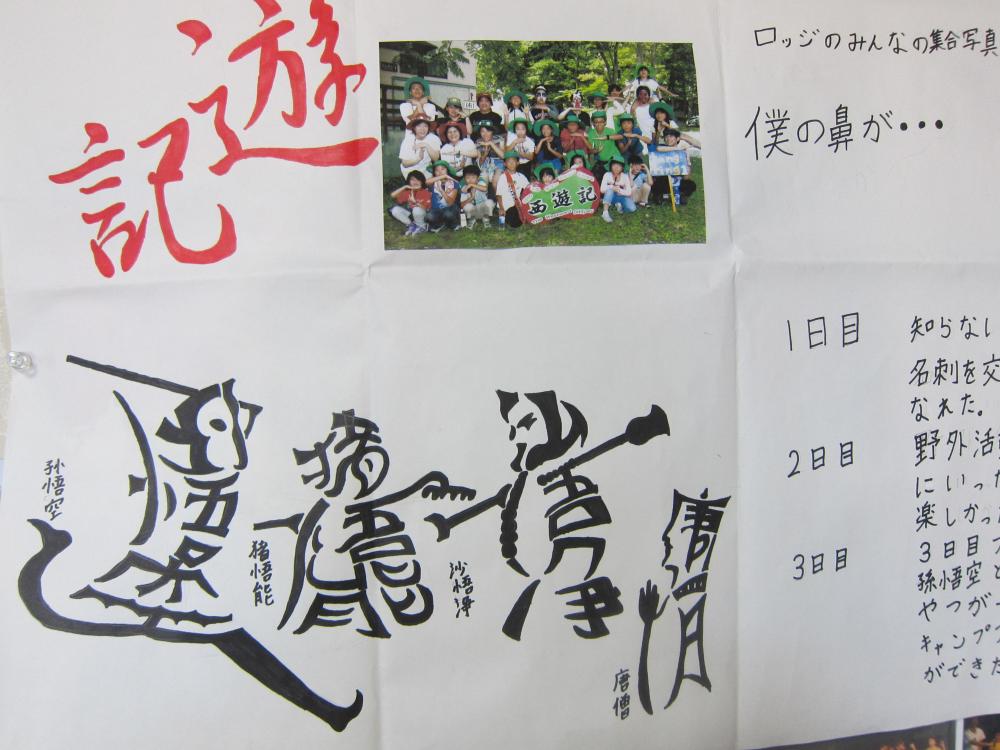 遊
記
西遊記
ロッジのみんなの集合写真
僕の鼻が・・・
孫悟空
猪悟能
沙悟浄
唐僧
1日目 知らない
名刺を交
なれた。
2日目 野外活
にいった
楽しかっ
3日目 3日目
孫悟空と
やつが
キャンプ
ができた